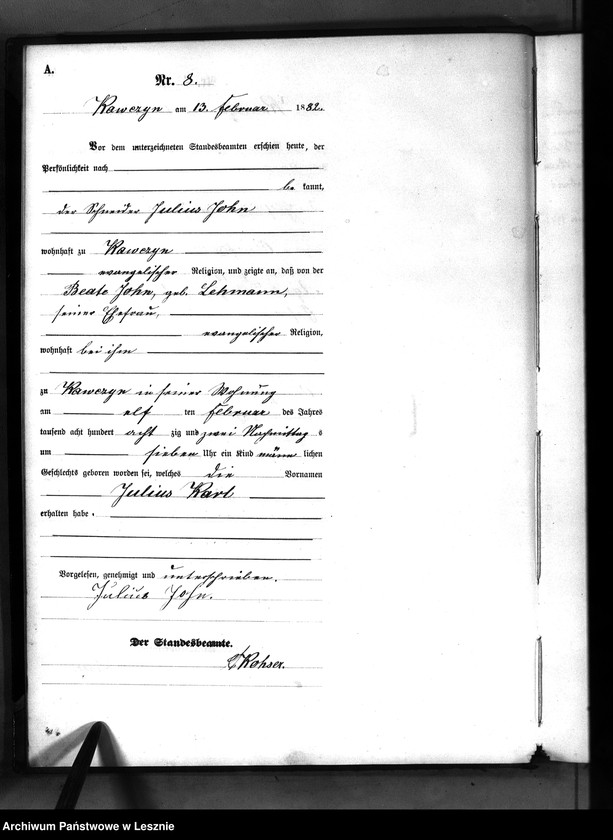 A.
Nr. 8.
Kawczyn am 13. Februar 1882.
Vor dem unterzeichneten Standesbeamten erschien heute, der
Persönlichkeit nach
be kannt,
der Schneider Julius John
wohnhaft zu Kawczyn
evangelischer Religion, und zeigte an, daß von der
Beate John, geb. Lehmann,
seiner Ehefrau,
evangelischer Religion,
wohnhaft bei ihm
zu Kawczyn in seiner Wohnung
am elf ten Februar des Jahres
tausend acht hundert acht zig und zwei Nachmittag s
um sieben Uhr ein Kind männ lichen
Geschlechts geboren worden sei, welches die Vornamen
Julius Karl
erhalten habe.
Vorgelesen, genehmigt und unterschrieben.
Julius John.
Der Standesbeamte.
Archiwum Państwowe w Lesznie